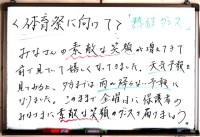 ＜体育祭に向けて＞
みなさんの素敵な笑顔が増えてきて
前で見ていて嬉しくなってきました。天気予報を
見てみると、夕方までは雨が降らない予報に
なりました。このままで金曜日に保護者の
みなさまに素敵な笑顔のダンスを届けましょう。